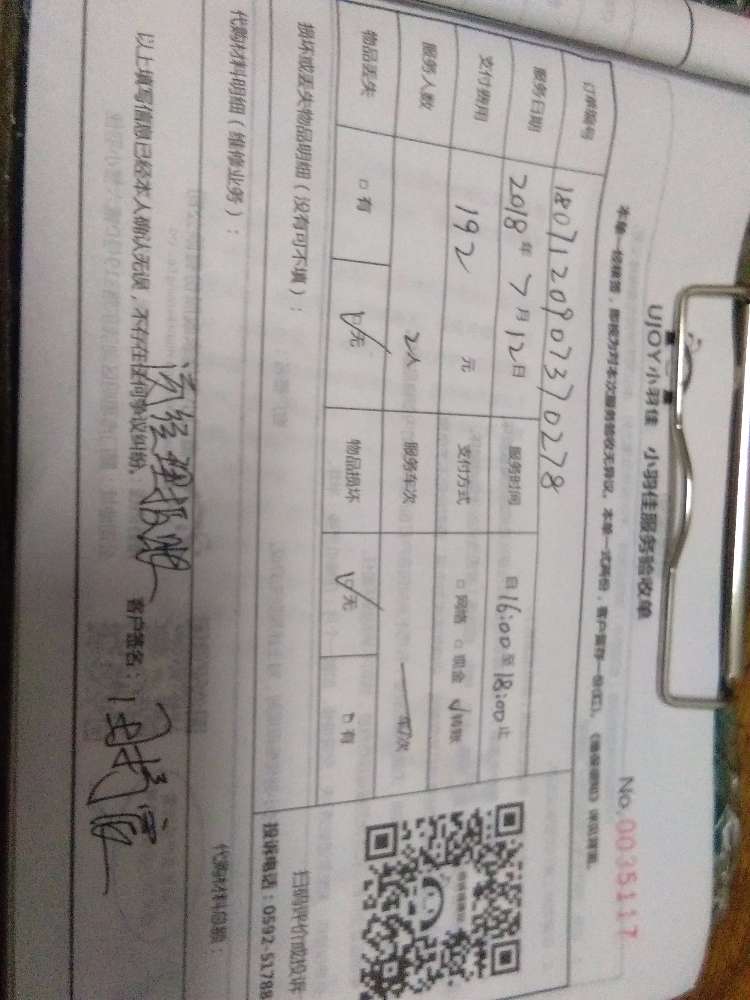 UJOY小羽佳 小羽佳服务验收单
No. 0035117
本单一经签署，即视为对本次服务验收无异议。本单一式两份，客户留存一份（红）。
订单编号 180712090737 0278
服务日期 2018年7月12日 服务时间 自16:00至18:00止
支付费用 192 元 支付方式 □网络 □现金 ☑转账
服务人数 2人 服务车次 — 车/次
物品丢失 □有 ☑无 物品损坏 ☑无 □有
损坏或丢失物品明细（没有可不填）：
扫码评价或投诉
投诉电话：0592-51788
代购材料明细（维修业务）：
代购材料总额：
以上填写信息已经本人确认无误，不存在任何争议纠纷。
客户签名：